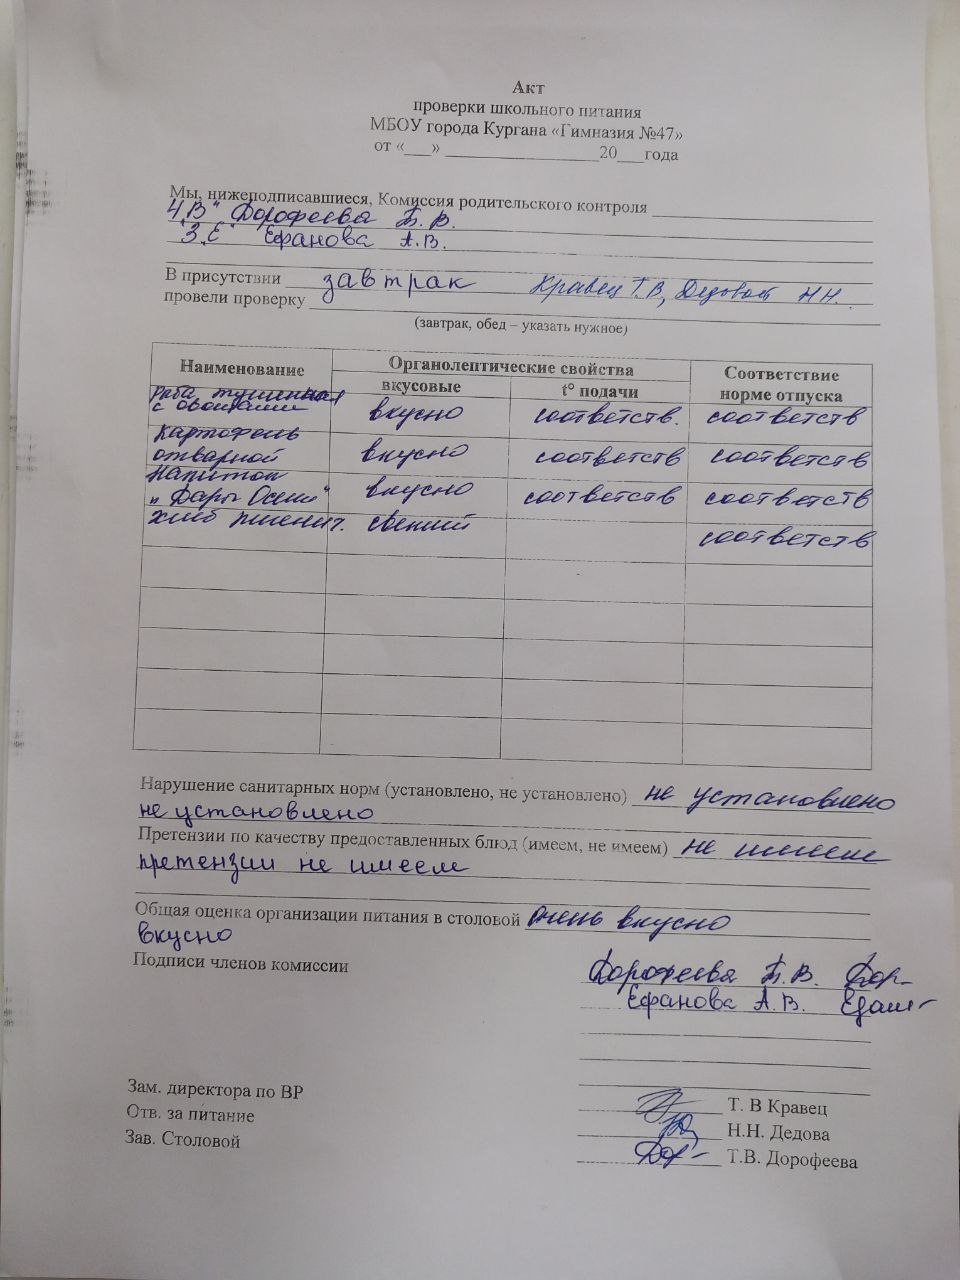 Акт
проверки школьного питания
МБОУ города Кургана «Гимназия №47»
от «___» _________________20___года
Мы, нижеподписавшиеся, Комиссия родительского контроля
4„В" Дорофеева Т.В.
3„Е" Ефанова А.В.
В присутствии завтрак Кравец Т.В, Дедовой Н.Н.
провели проверку
(завтрак, обед – указать нужное)
Наименование Органолептические свойства Соответствие норме отпуска
вкусовые t° подачи
рыба тушенная с овощами вкусно соответств. соответств
картофель отварной вкусно соответств соответств
напиток „Дары Осени" вкусно соответств соответств
хлеб пшенич. свежий соответств
Нарушение санитарных норм (установлено, не установлено) не установлено
не установлено
Претензии по качеству предоставленных блюд (имеем, не имеем) не имеем
претензии не имеем
Общая оценка организации питания в столовой очень вкусно
вкусно
Подписи членов комиссии
Дорофеева Т.В. Дор-
Ефанова А.В.
Зам. директора по ВР Т. В Кравец
Отв. за питание Н.Н. Дедова
Зав. Столовой Дор- Т.В. Дорофеева